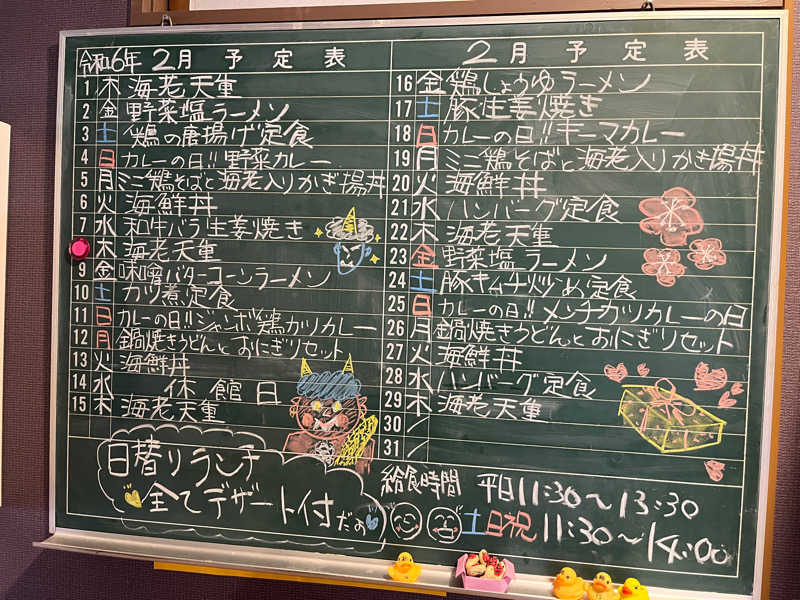 令和6年 2月 予定表
1 木 海老天重
2 金 野菜塩ラーメン
3 土 鶏の唐揚げ定食
4 日 カレーの日!! 野菜カレー
5 月 ミニ鶏そばと海老入りかき揚丼
6 火 海鮮丼
7 水 和牛バラ生姜焼き
木 海老天重
9 金 味噌バターコーンラーメン
10 土 カツ煮定食
11 日 カレーの日!! ジャンボ鶏カツカレー
12 月 鍋焼きうどんとおにぎりセット
13 火 海鮮丼
14 水 休館日
15 木 海老天重
2月 予定表
16 金 鶏しょうゆラーメン
17 土 豚生姜焼き
18 日 カレーの日!! キーマカレー
19 月 ミニ鶏そばと海老入りかき揚丼
20 火 海鮮丼
21 水 ハンバーグ定食
22 木 海老天重
23 金 野菜塩ラーメン
24 土 豚キムチ炒め定食
25 日 カレーの日!! メンチカツカレーの日
26 月 鍋焼きうどんとおにぎりセット
27 火 海鮮丼
28 水 ハンバーグ定食
29 木 海老天重
30
31
日替りランチ
全てデザート付だお
給食時間 平日11:30〜13:30
土日祝 11:30〜14:00